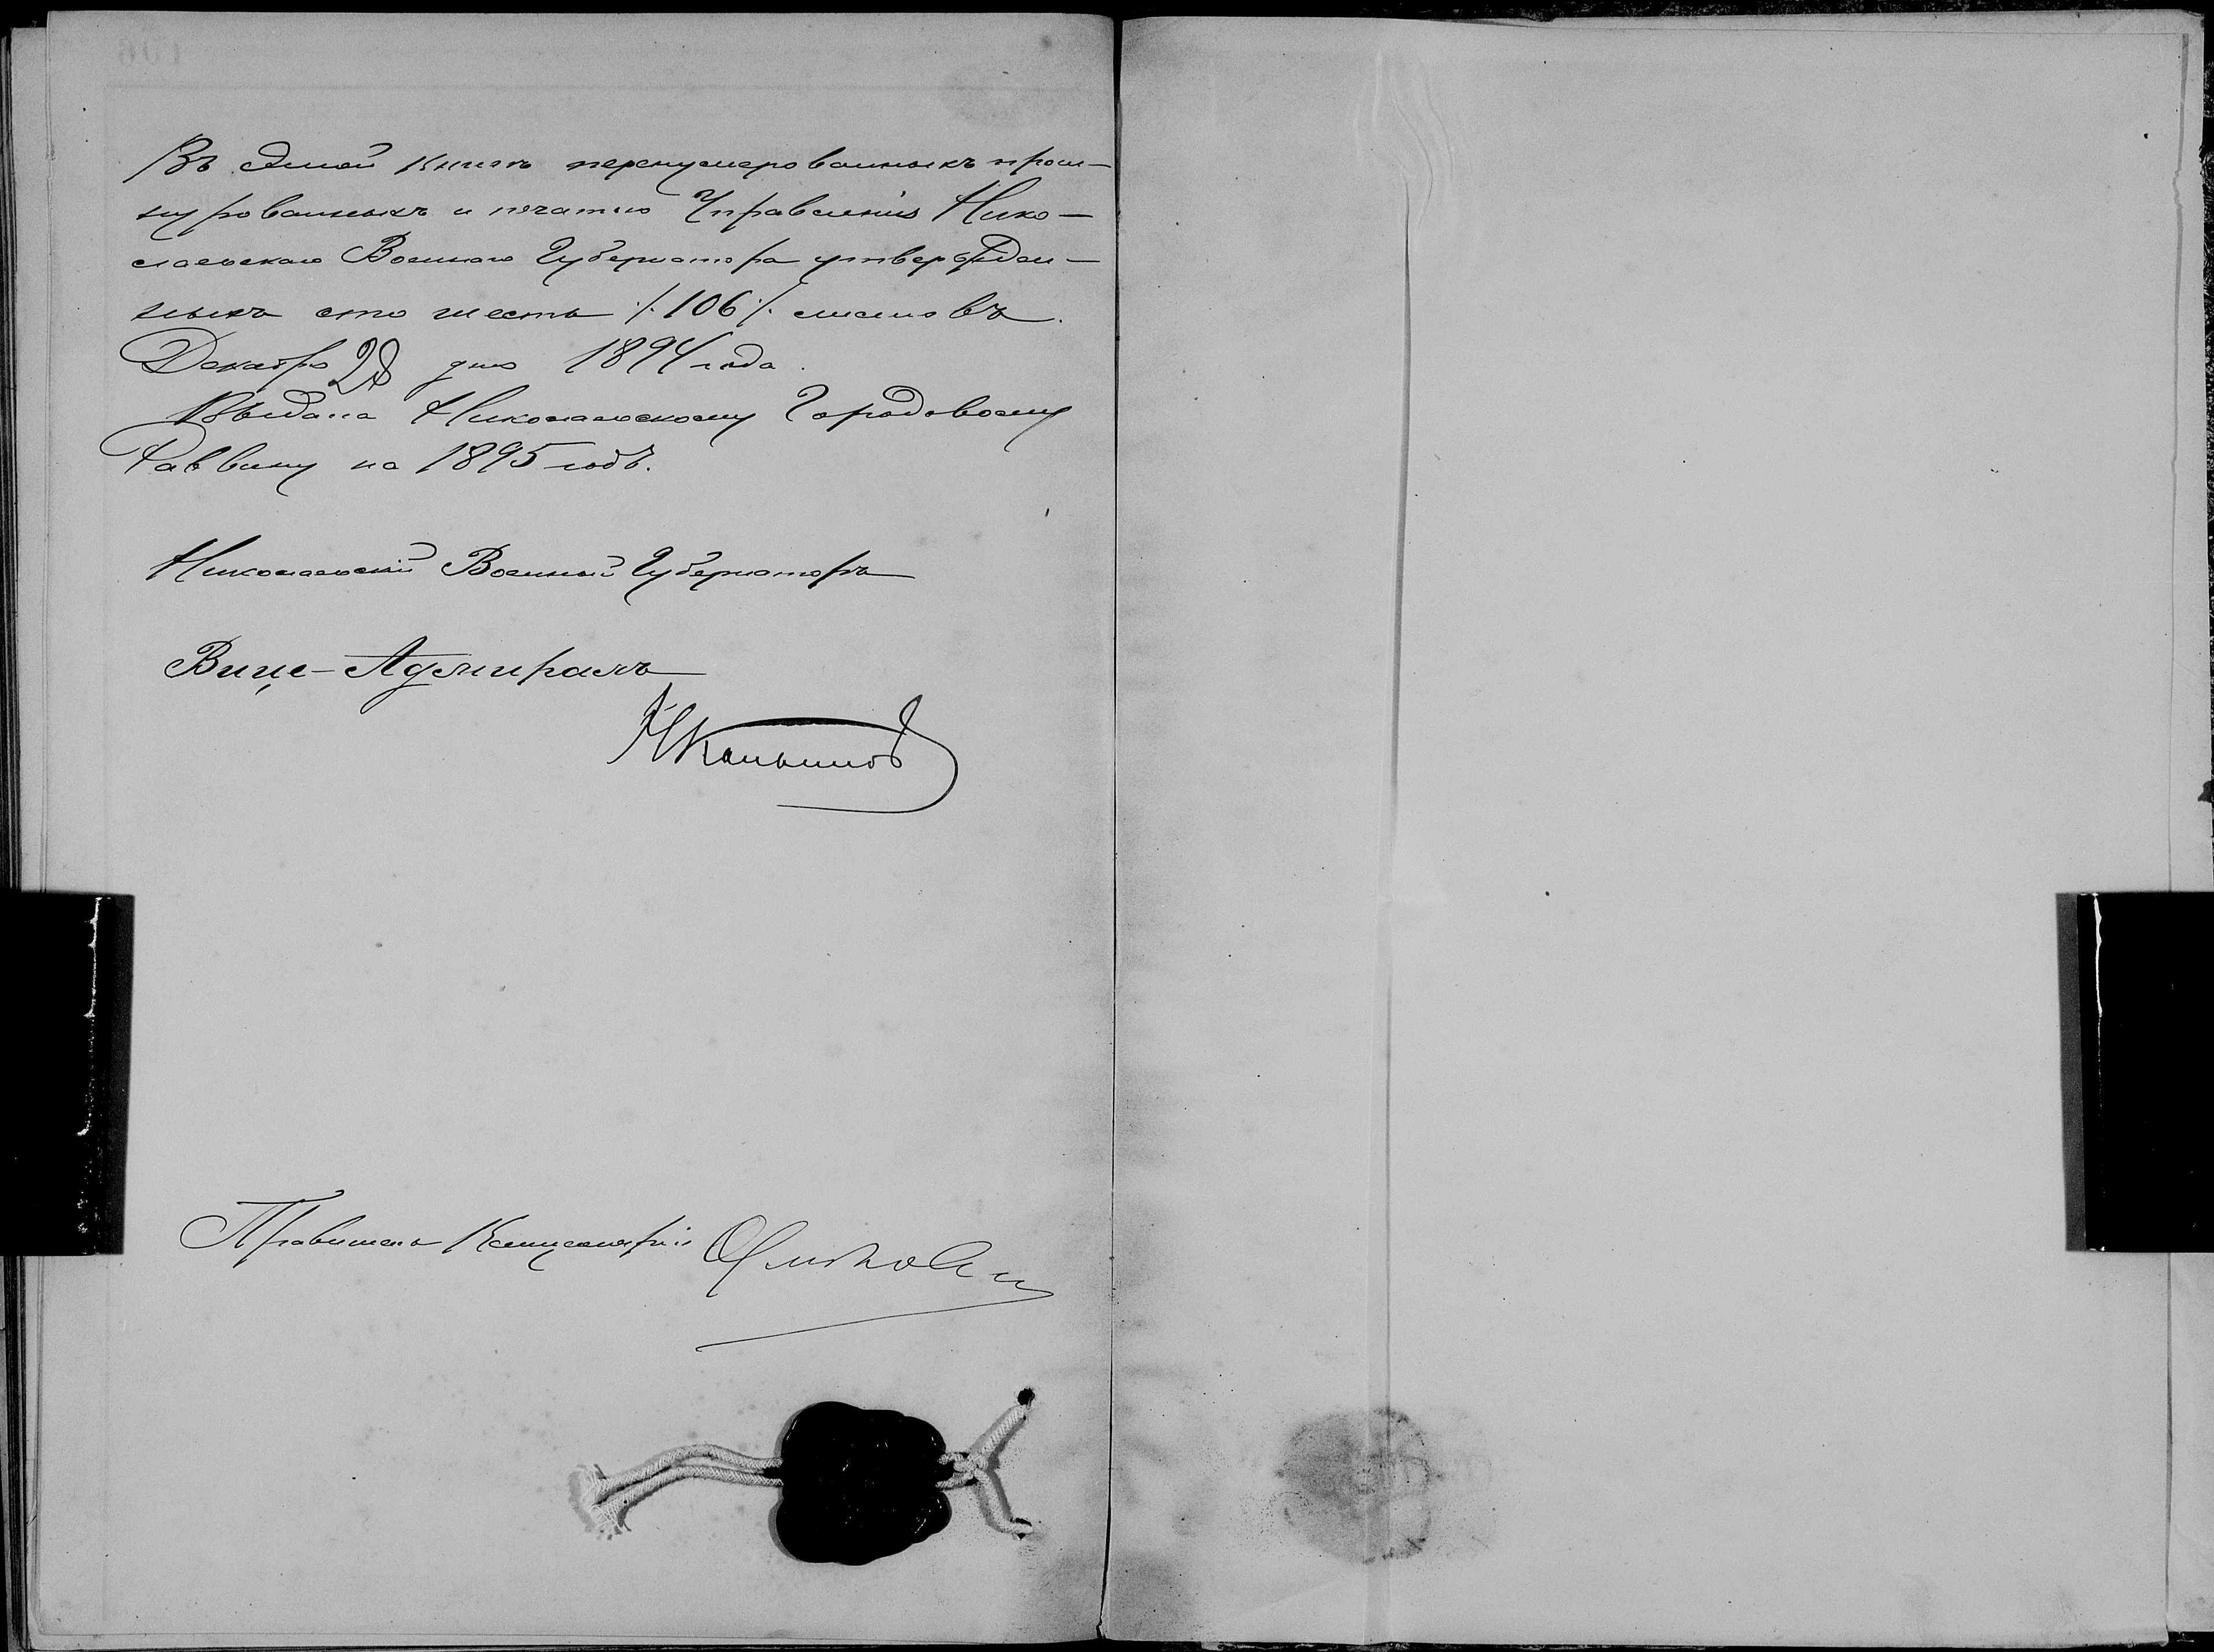 Въ этой книгѣ перенумерованныхъ прош-
нурованныхъ и печатью Управленія Нико-
лаевскаго Военнаго Губернатора утвержден-
ныхъ сто шесть /:106:/ листовъ.
Декабря 28 дня 1894 года.
Выдана Николаевскому Городовому
Раввину на 1895 годъ.
Николаевскій Военный Губернаторъ
Вице-Адмиралъ
Правитель Канцеляріи